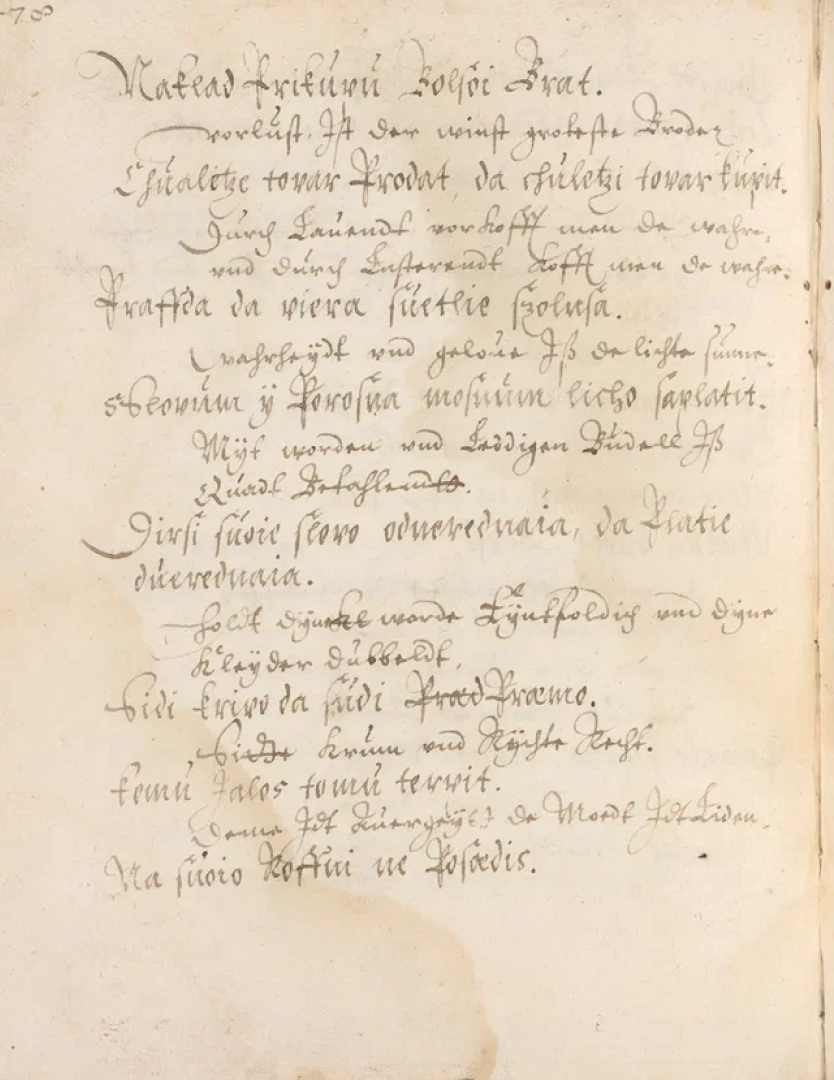 78
Naklad Prikupu Bolsoi Brat.
vorlust Ist der winst groteste Broder
Chualitze tovar Prodat, da chuletzi tovar kupit.
Durch Lauendt vorkofft men de wahre,
vnd durch Lasterendt kofft men de wahre.
Praffda da viera suetlie szolnsa.
Wahrheydt vnd geloue Iß de lichte sunne.
sSlovum y Porosna mosnum licho saplatit.
Myt worden vnd Leddigen Büdell Iß
Quadt Betahlendt.
Dirsi suoie slovo odnerednaia, da Platie
duerednaia.
holdt dyne worde Eyntfoldich vnd dyne
Kleyder dubbeldt.
Sidi krivo da sudi Præd Præmo.
Sitte krum vnd Rychte Recht.
komu Jalos tomu terpit.
Deme Idt Auergeytt de Moedt Idt Liden.
Na suoio Koffni ne Posædis.